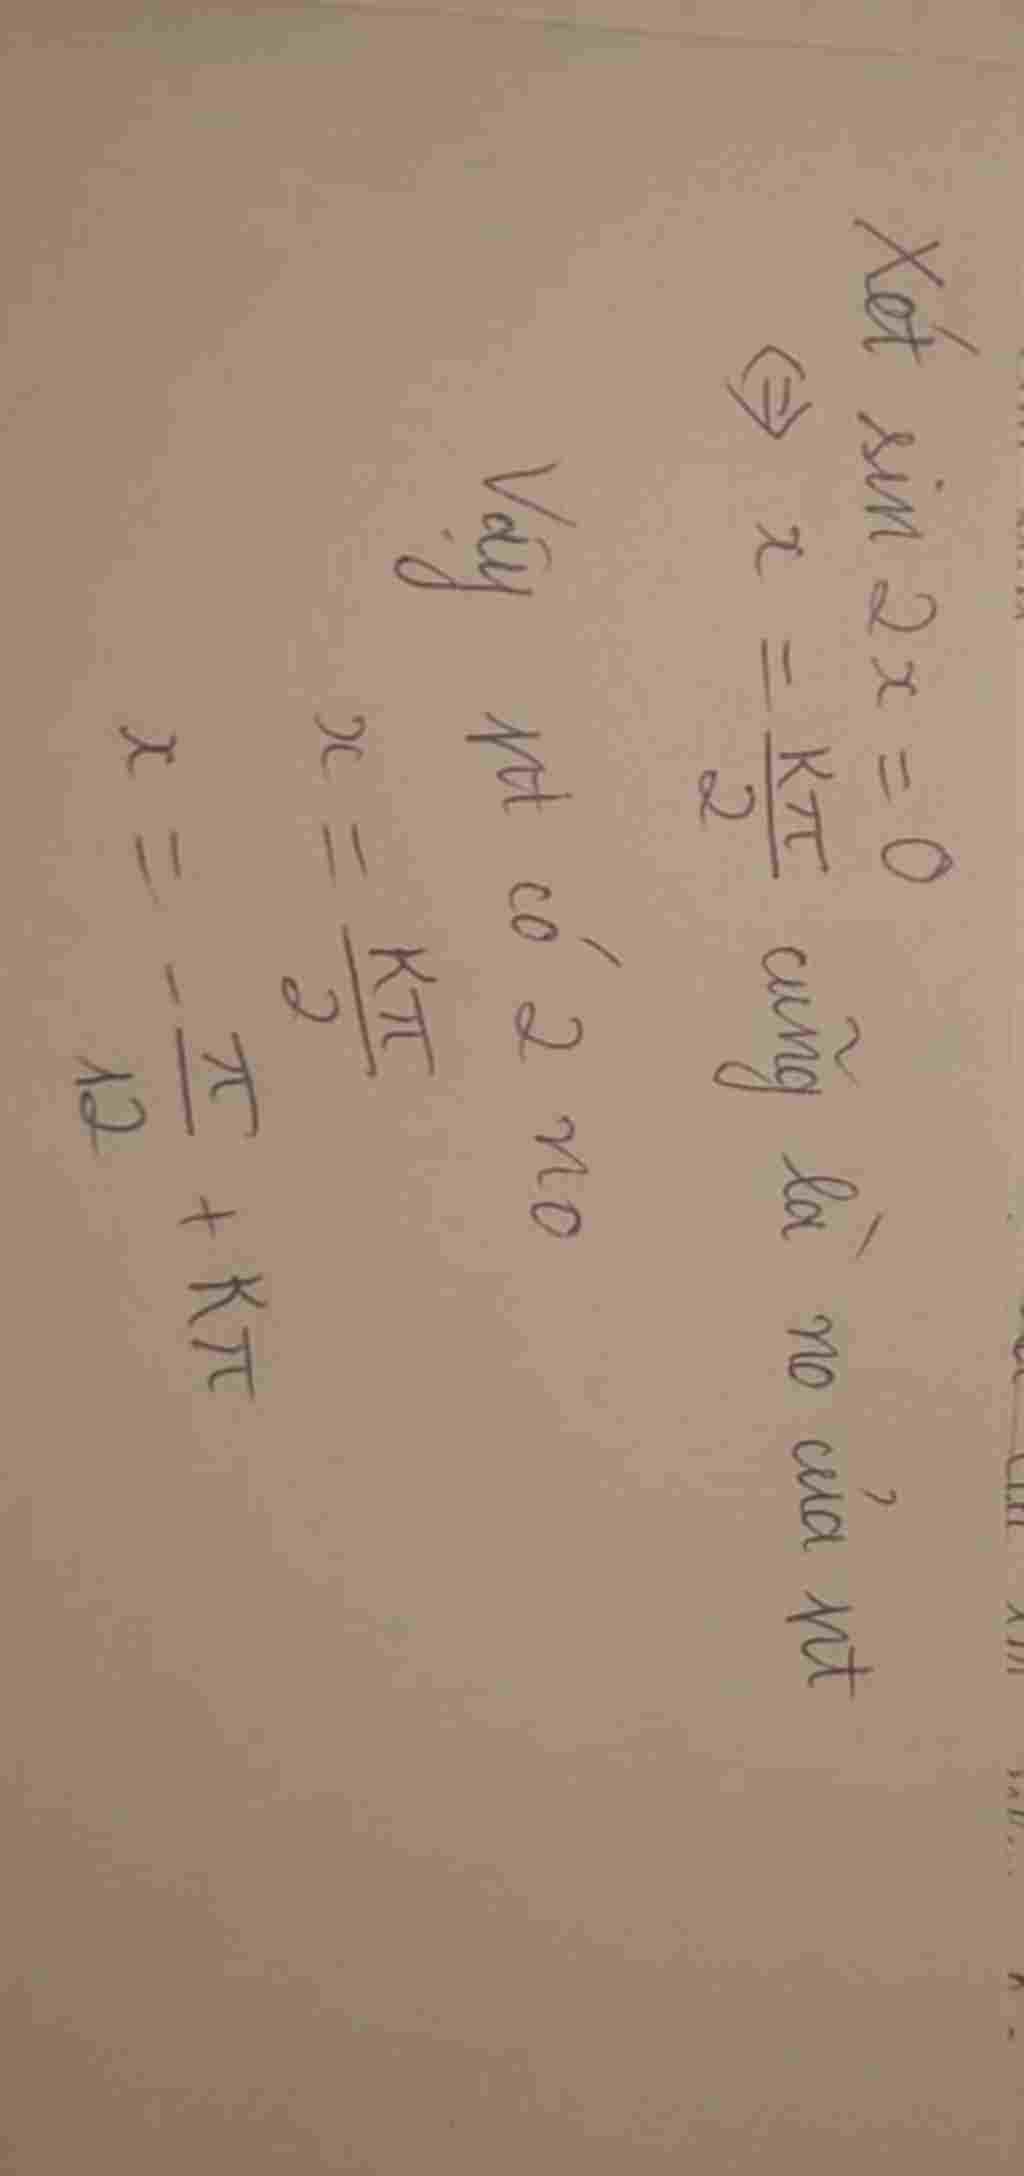 Xét sin 2x = 0
⇔ x = Kπ/2 cũng là no của pt
Vậy pt có 2 no
x = Kπ/2
x = - π/12 + Kπ